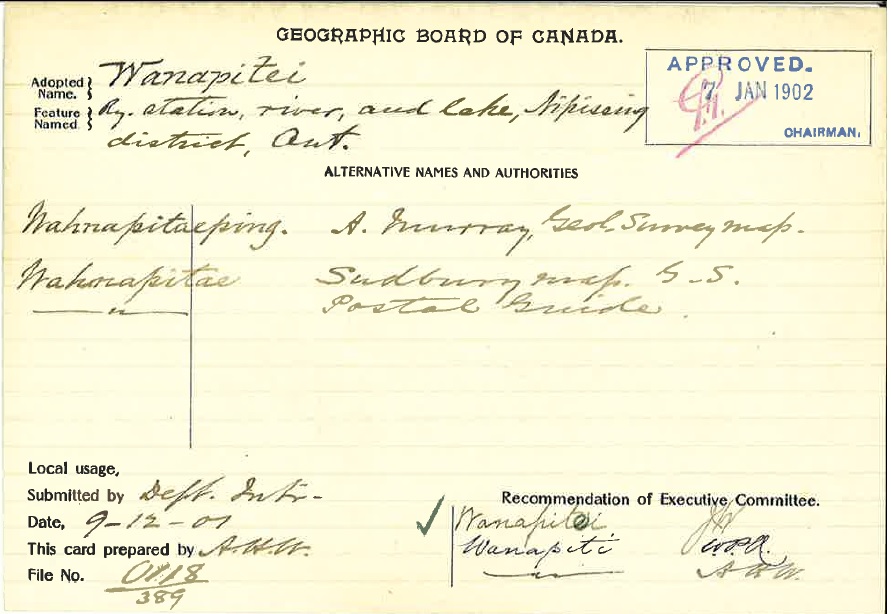 GEOGRAPHIC BOARD OF CANADA.
Adopted Name. Wanapitei
Feature Named. Ry. station, river, and lake, Nipissing
district, Ont.
APPROVED.
7 JAN 1902
CHAIRMAN.
ALTERNATIVE NAMES AND AUTHORITIES
Wahnapitaeping. A. Murray, Geol. Survey map.
Wahnapitae Sudbury map. G.S.
— " — Postal Guide.
Local usage,
Submitted by Dept. Intr-
Date, 9-12-01
This card prepared by A.H.W.
File No. 0118
389
Recommendation of Executive Committee.
✓ Wanapitei
Wanapiti
— " — A.H.W.